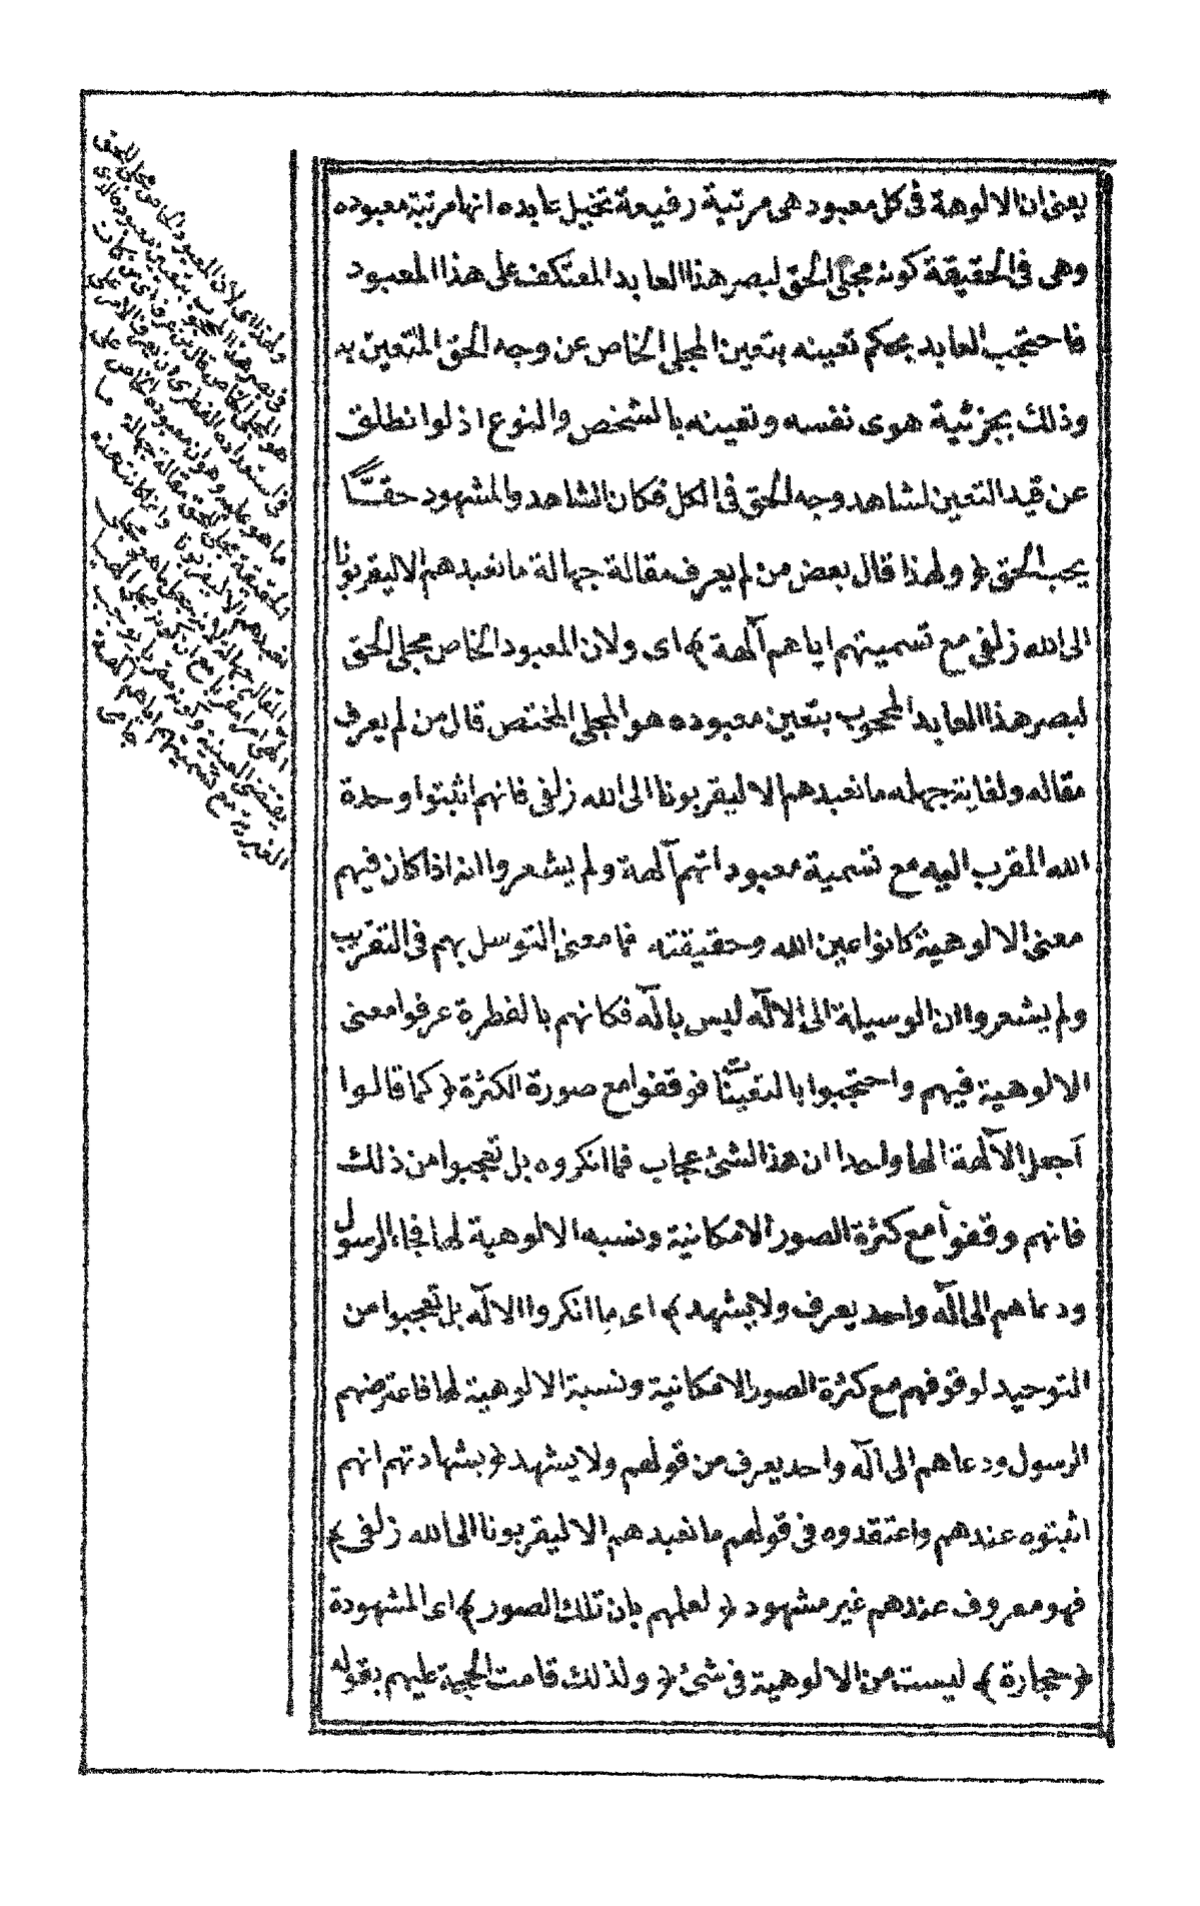 يعنى ان الالوهة فى كل معبود هى مرتبة رفيعة تخيل عابده انها مرتبة معبوده
وهى فى الحقيقة كونه مجلى الحق لبصر هذا العابد المعتكف على هذا المعبود
فاحتجب العابد بحكم تعينه بتعين المجلى الخاص عن وجه الحق المتعين به
وذلك بجزئية هوى نفسه وتعينه بالشخص والنوع اذ لو انطلق
عن قيد التعين لشاهد وجه الحق فى الكل فكان الشاهد والمشهود حقــا
يحب الحق ﴿ ولهذا قال بعض من لم يعرف مقالة جهالة ما نعبدهم الا ليقربونا
الى الله زلفى مع تسميتهم اياهم آلهة ﴾ اى ولان المعبود الخاص مجلى الحق
لبصر هذا العابد المحجوب بتعين معبوده هو المجلى المختص قال من لم يعرف
مقاله ولغاية جهله ما نعبدهم الا ليقربونا الى الله زلفى فانهم اثبتوا وحدة
الله المقرب اليه مع تسمية معبوداتهم آلهة ولم يشعروا انه اذا كان فيهم
معنى الالوهية كانوا عين الله وحقيقته فما معنى التوسل بهم فى التقريب
ولم يشعروا ان الوسيلة الى الالٓه ليس بالٓه فكانهم بالفطرة عرفوا معنى
الالوهية فيهم واحتجبوا بالتعينات فوقفوا مع صورة الكثرة ﴿ كما قالوا
آجعل الآلهة الها واحدا ان هذا لشئ عجاب فما انكروه بل تعجبوا من ذلك
فانهم وقفوا مع كثرة الصور الامكانية ونسبه الالوهية لها فجاء الرسول
ودعاهم الى الٓه واحد يعرف ولا يشهد ﴾ اى ما انكروا الالٓه بل تعجبوا من
التوحيد لوقوفهم مع كثرة الصور الامكانية ونسبة الالوهية لها فاعترضهم
الرسول ودعاهم الى الٓه واحد يعرف من قولهم ولا يشهد ﴿ بشهادتهم انهم
اثبتوه عندهم واعتقدوه فى قولهم ما نعبدهم الا ليقربونا الى الله زلفى ﴾
فهو معروف عندهم غير مشهود ﴿ لعلمهم بان تلك الصور ﴾ اى المشهودة
﴿ حجارة ﴾ ليست من الالوهية فى شئ ﴿ ولذلك قامت الحجة عليهم بقوله
ولهذا اى لان المعبود الخاص مجلى للحق
فى بصر هذا المحجوب بتعين معبوده الذى
هو المجلى الخاص قال من عرف اى من كان
فى استعداده الفطرى ان يعرف الامر على
ما هو عليه وهو ان معبوده الخاص على
الحقيقة مجلى الحق مقالة جهالة ما
نعبدهم الا ليقربونا وانما كانت هذه
المقالة جهالة لانه جعل ما هو مجلى
الهى امرا مقربا مع ان كونه مجلى الهى
يقتضى العينية وكونه مقربا يوجب
الغيرية مع تسميتهم اياهم آلهة